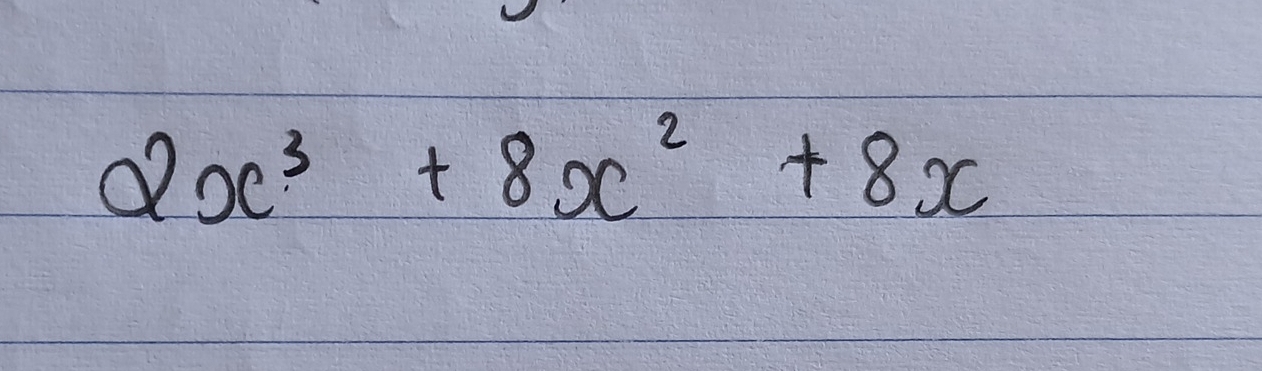 2x³ + 8x² + 8x